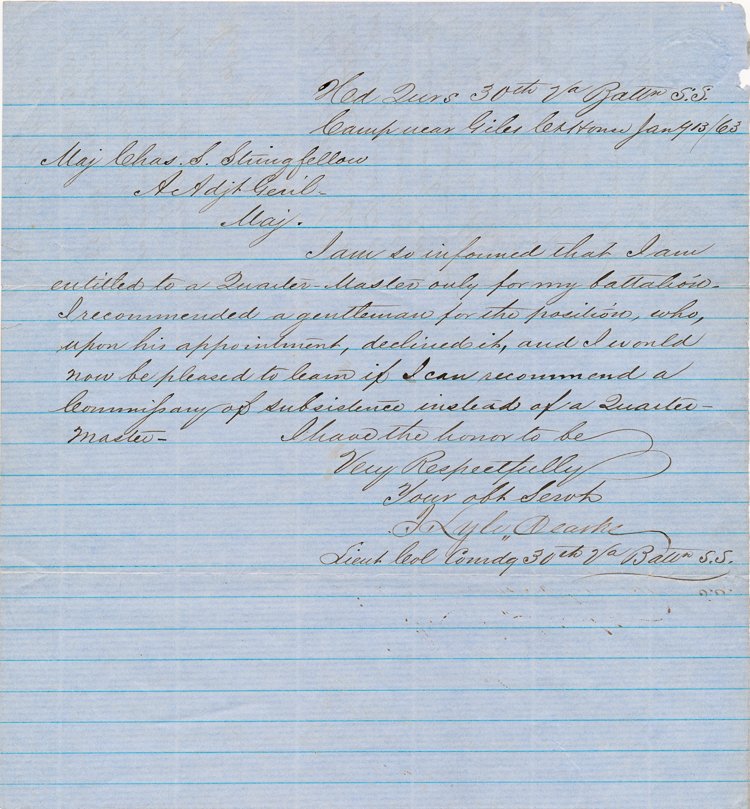 Hd Qurs 30th Va Battn S.S.
Camp near Giles Ct House Jany 13/63
Maj Chas. S. Stringfellow
A. Adjt Genl-
Maj.
I am so informed that I am
entitled to a Quarter-Master only for my battalion-
I recommended a gentleman for the position, who,
upon his appointment, declined it, and I would
now be pleased to learn if I can recommend a
Commissary of subsistence instead of a Quarter-
Master- I have the honor to be
Very Respectfully
Your obt Servt
J. Lyle Clarke
Lieut Col Comdg 30th Va Battn S.S.